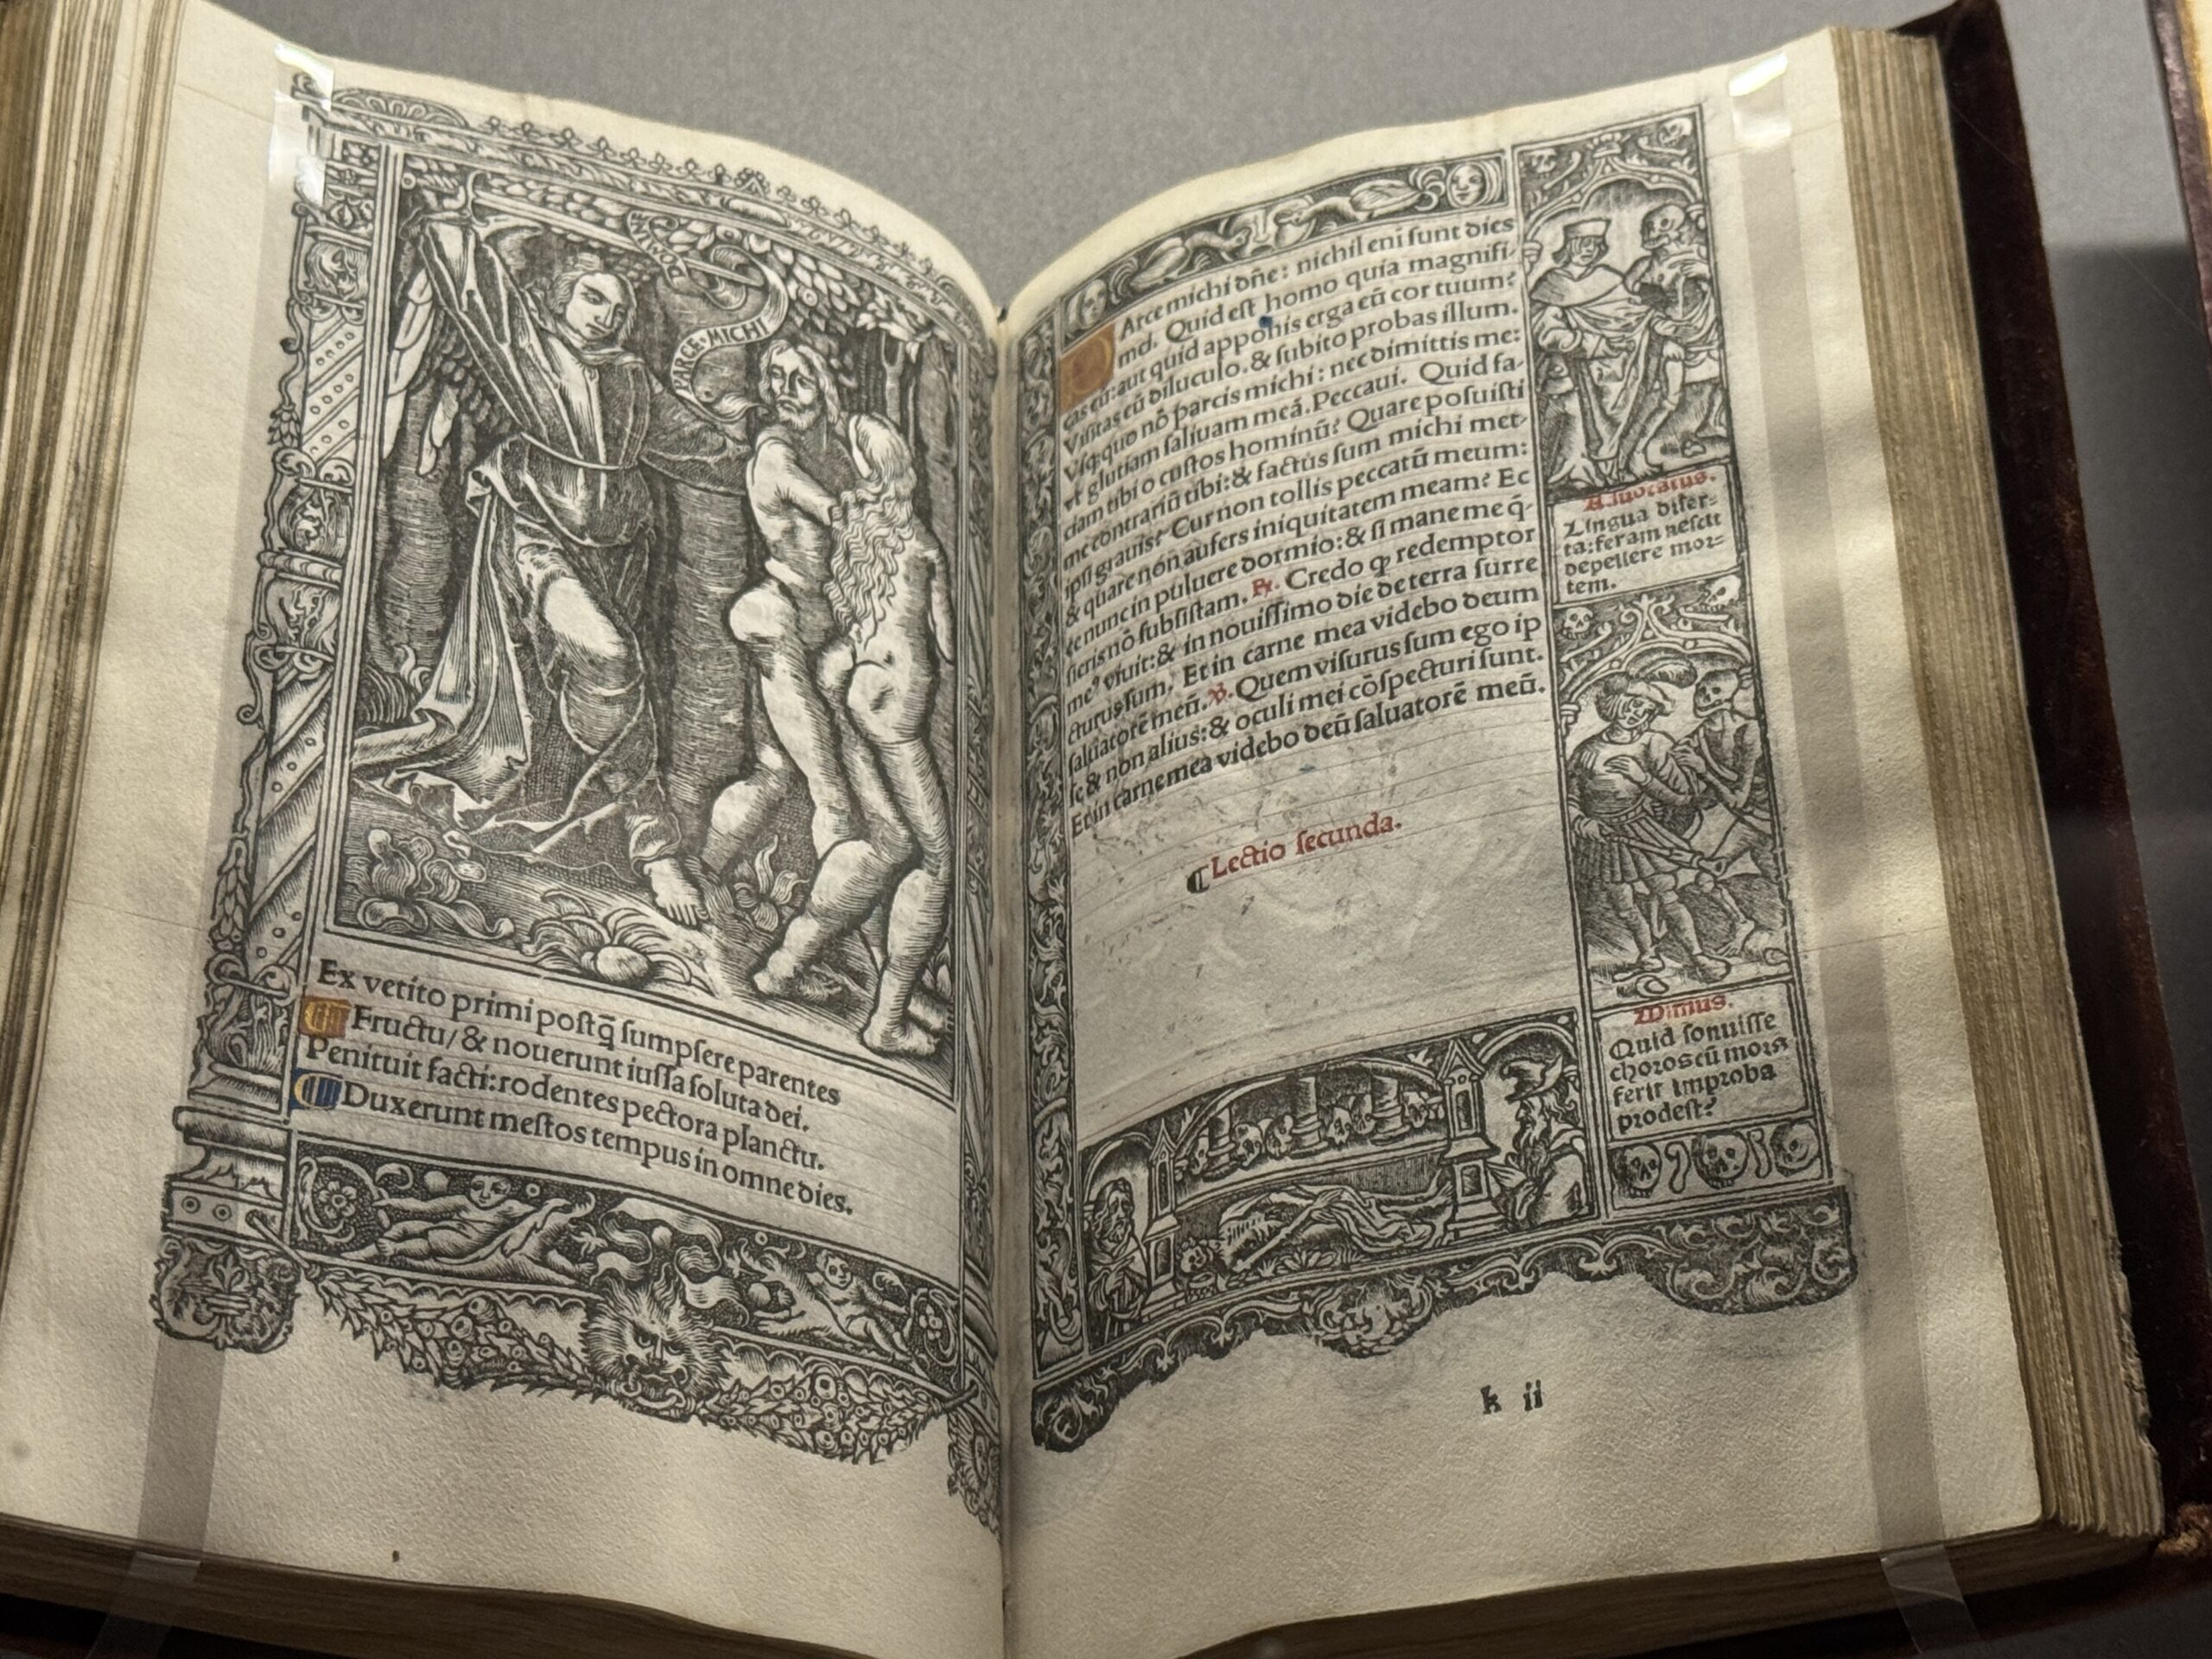 DOMINE
PARCE·MICHI
Ex vetito primi postq̃ sumpsere parentes
Fructu/ & nouerunt iussa soluta dei.
Penituit facti: rodentes pectora planctu.
Duxerunt mestos tempus in omne dies.
PArce michi dñe: nichil eni sunt dies
mei. Quid est homo quia magnifi-
cas eū: aut quid apponis erga eū cor tuum?
Visitas eū diluculo. & subito probas illum.
Vsq; quo nō parcis michi: nec dimittis me:
vt glutiam saliuam meā. Peccaui. Quid fa-
ciam tibi o custos hominū? Quare posuisti
me contrariū tibi: & factus sum michi met-
ipsi grauis? Cur non tollis peccatū meum:
& quare non aufers iniquitatem meam? Ec
ce nunc in puluere dormio: & si mane me q̃-
sieris nō subsistam. ℟. Credo ꝙ redemptor
me⁹ viuit: & in nouissimo die de terra surre
cturus sum. Et in carne mea videbo deum
saluatorē meū. ℣. Quem visurus sum ego ip
se & non alius: & oculi mei cōspecturi sunt.
Et in carne mea videbo deū saluatorē meū.
¶Lectio secunda.
Aduocatus.
Lingua diser-
ta: feram nescit
depellere mor-
tem.
Mimus.
Quid sonuisse
choros cū mors
ferit improba
prodest?
k ii